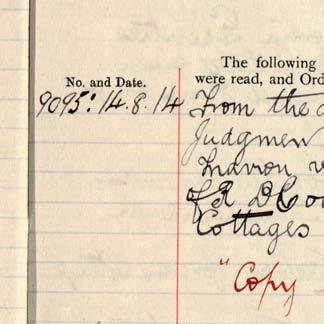 The following
were read, and Ord
No. and Date.
9095: 14.8.14 From the
Judgmen
of R D Co
Cottages
"Copy